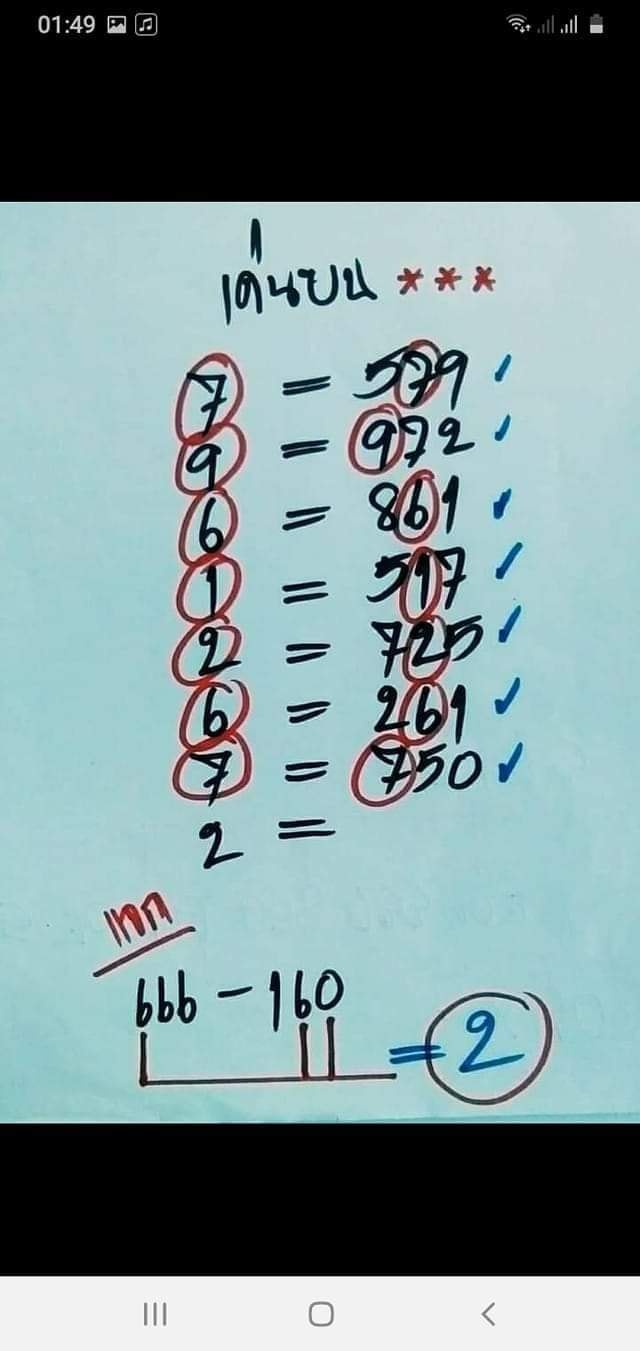 01:49
เด่นบน ***
7 = 579 ✓
9 = 972 ✓
6 = 861 ✓
1 = 517 ✓
2 = 725 ✓
6 = 261 ✓
7 = 750 ✓
2 =
666 - 160
= 2